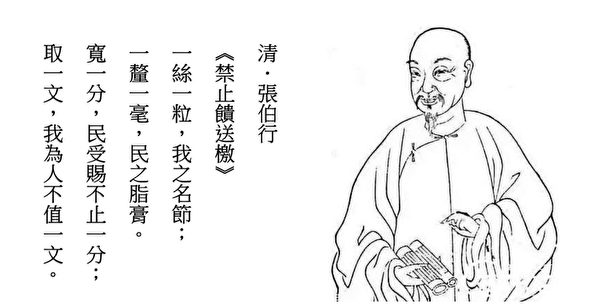 清．張伯行
《禁止饋送檄》
一絲一粒，我之名節；
一釐一毫，民之脂膏。
寬一分，民受賜不止一分；
取一文，我為人不值一文。